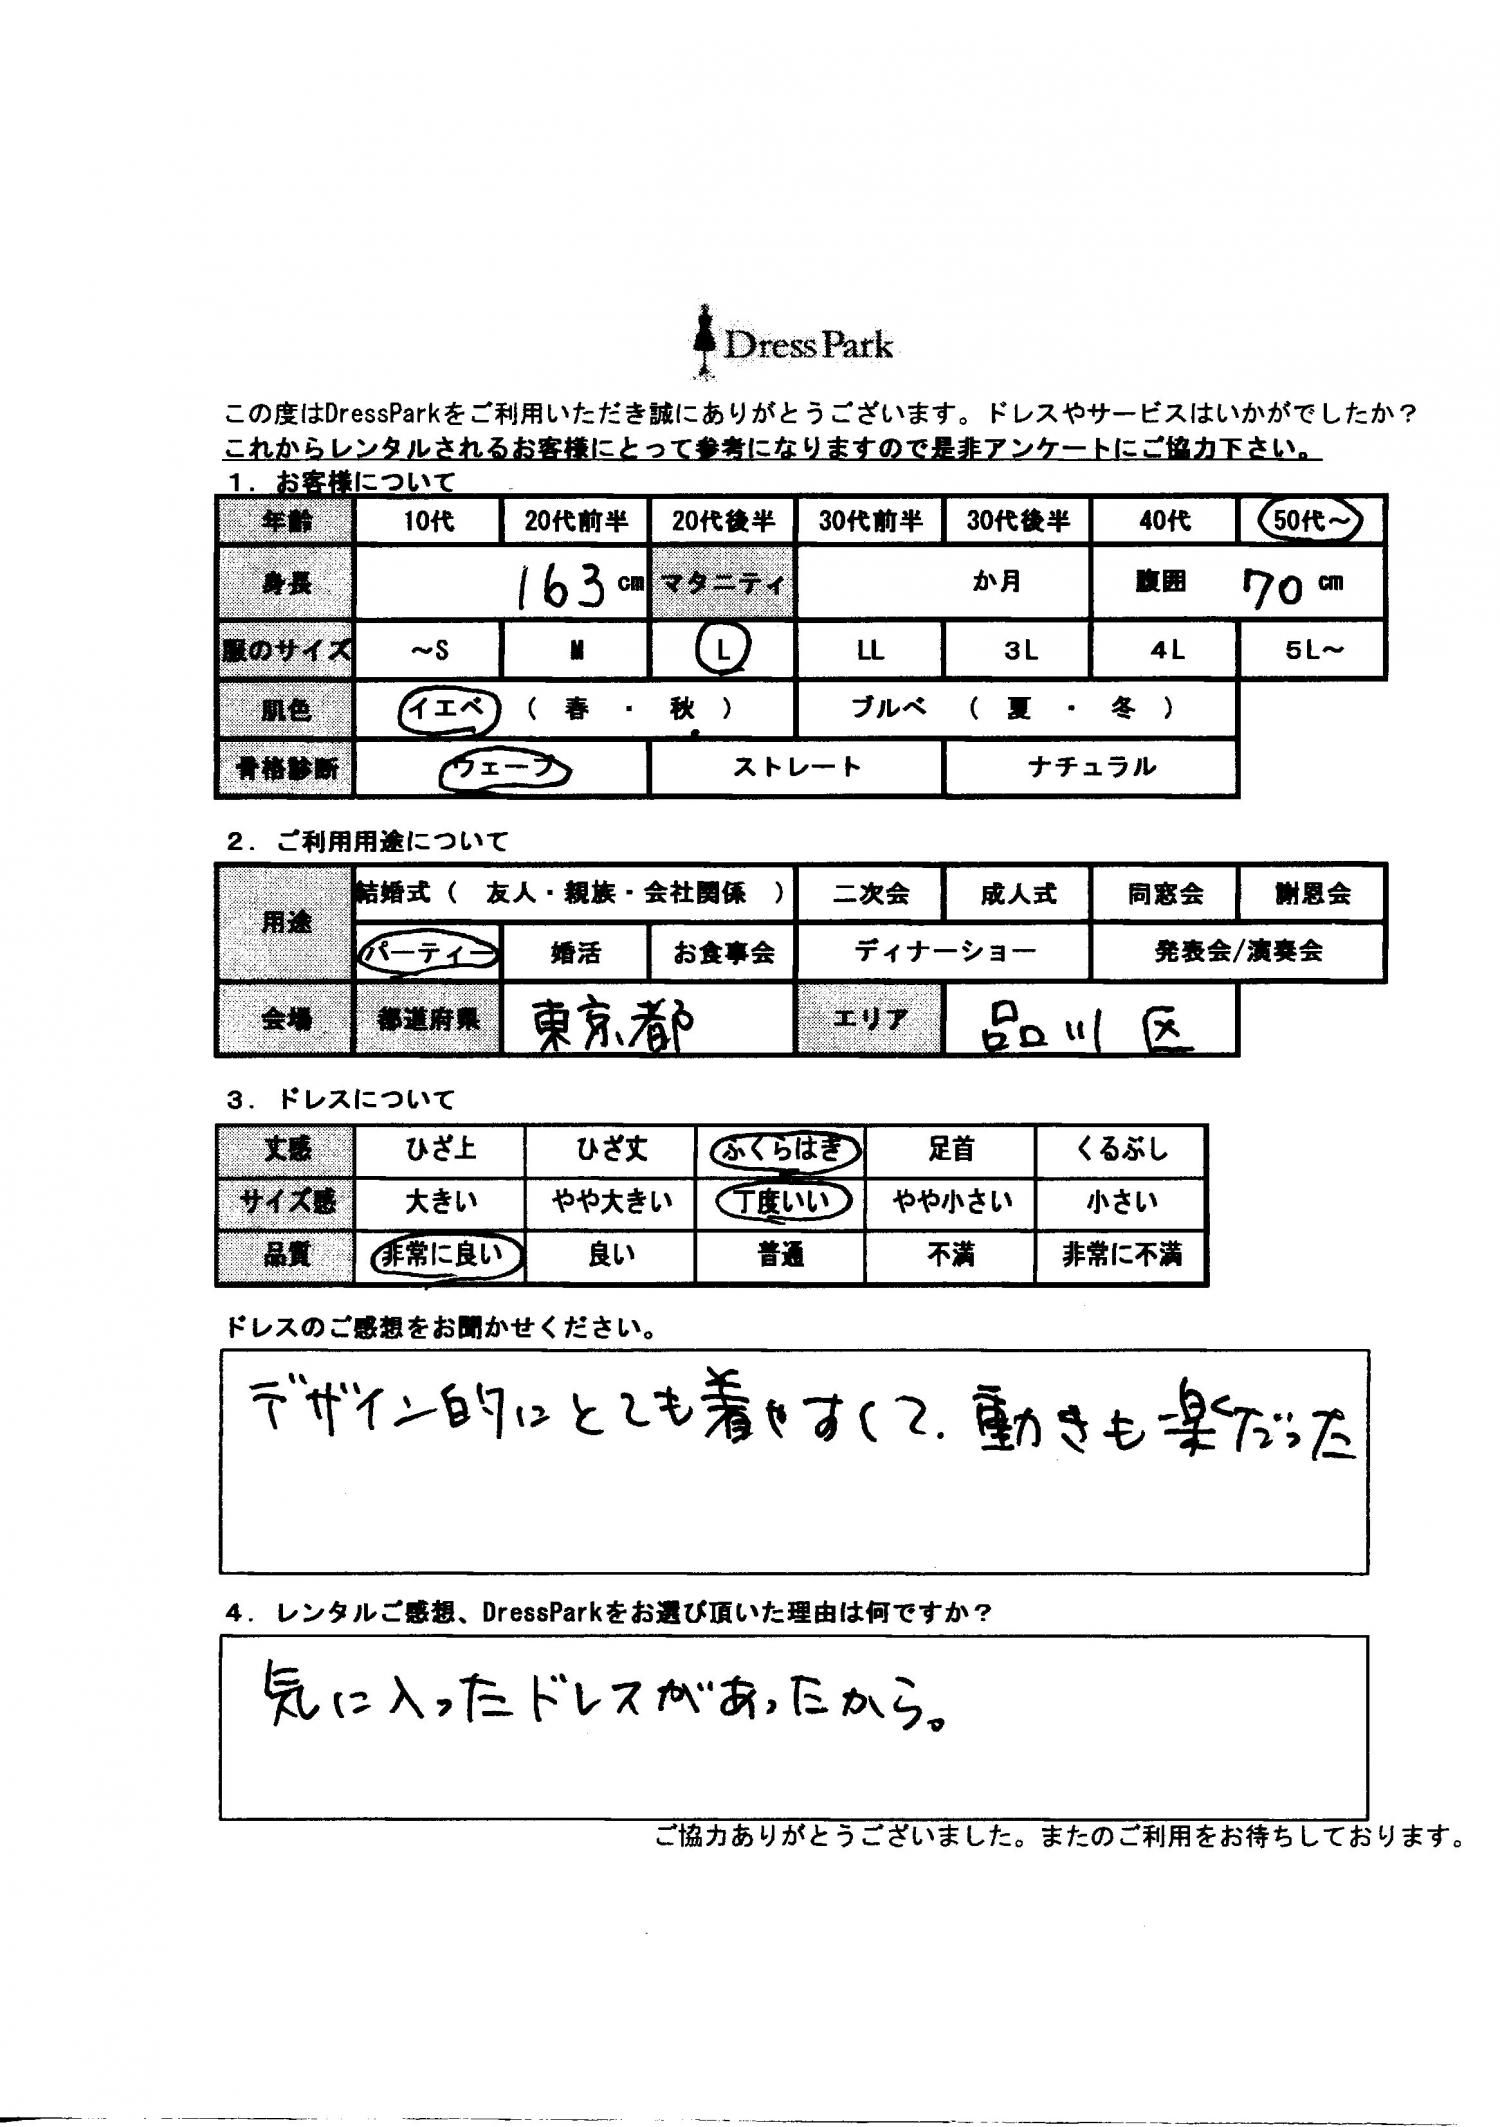 Dress Park
この度はDressParkをご利用いただき誠にありがとうございます。ドレスやサービスはいかがでしたか？
これからレンタルされるお客様にとって参考になりますので是非アンケートにご協力下さい。
１．お客様について
年齢 10代 20代前半 20代後半 30代前半 30代後半 40代 50代～
身長 163 cm マタニティ か月 腹囲 70 cm
服のサイズ ～S M L LL 3L 4L 5L～
肌色 イエベ （ 春 ・ 秋 ） ブルベ （ 夏 ・ 冬 ）
骨格診断 ウェーブ ストレート ナチュラル
２．ご利用用途について
用途 結婚式（ 友人・親族・会社関係 ） 二次会 成人式 同窓会 謝恩会
パーティー 婚活 お食事会 ディナーショー 発表会/演奏会
会場 都道府県 東京都 エリア 品川区
３．ドレスについて
丈感 ひざ上 ひざ丈 ふくらはぎ 足首 くるぶし
サイズ感 大きい やや大きい 丁度いい やや小さい 小さい
品質 非常に良い 良い 普通 不満 非常に不満
ドレスのご感想をお聞かせください。
デザイン的にとても着やすくて、動きも楽だった
４．レンタルご感想、DressParkをお選び頂いた理由は何ですか？
気に入ったドレスがあったから。
ご協力ありがとうございました。またのご利用をお待ちしております。